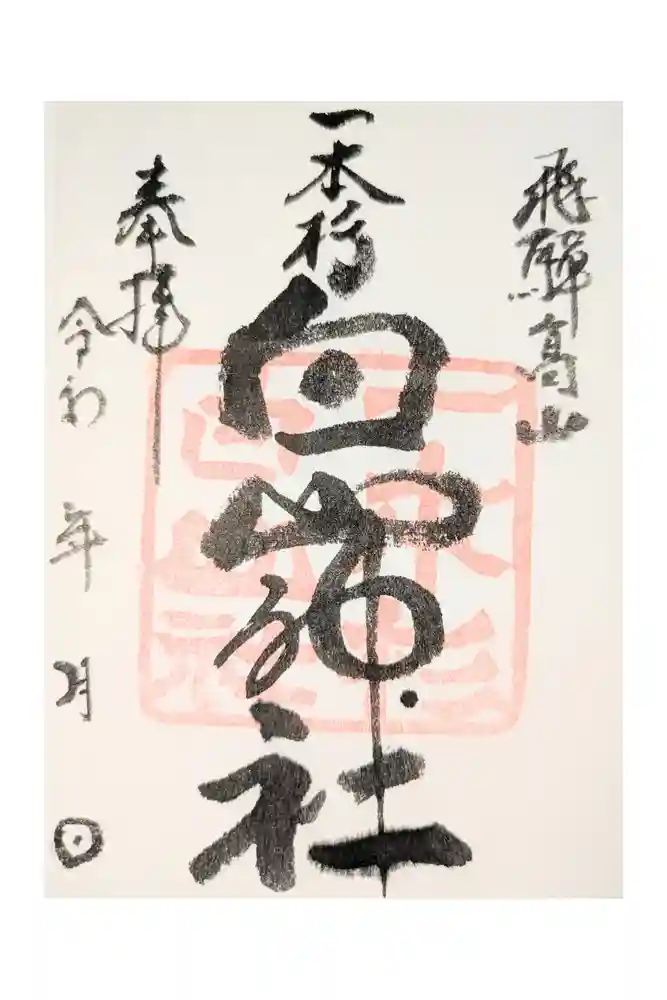 飛驒高山
一本杉
白山神社
奉拝
令和 年 月 日